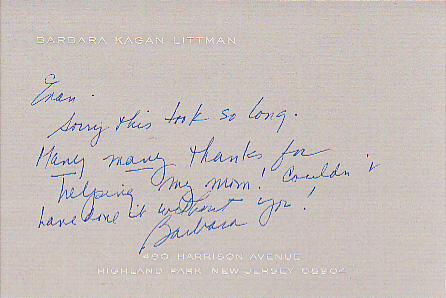 BARBARA KAGAN LITTMAN
Evan.
Sorry this took so long.
Many many thanks for
helping my mom! Couldn't
have done it without you!
Barbara
480 HARRISON AVENUE
HIGHLAND PARK NEW JERSEY 08904